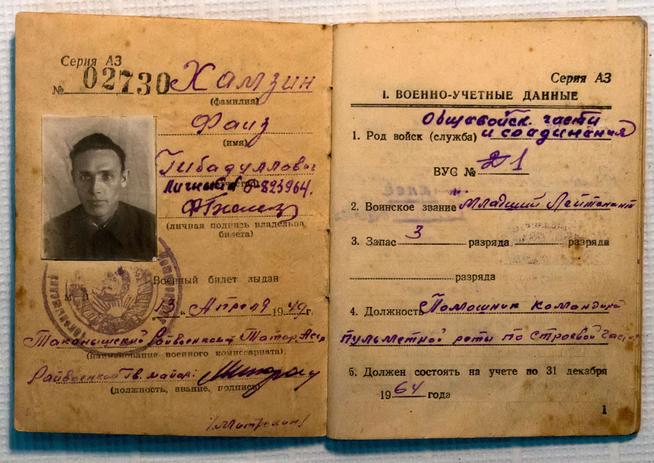 Серия АЗ
№ 02730 Хамзин
(фамилия)
Фаиз
(имя)
Гибадуллович
Личный № 823964.
(личная подпись владельца
билета)
Военный билет выдан
13 Апреля 1949г.
Такашинский Райвоенкомат Татар Асср
(наименование военного комиссариата)
Райвоенком Гв. майор:
(должность, звание, подпись)
/Митрохин/
Серия АЗ
I. ВОЕННО-УЧЕТНЫЕ ДАННЫЕ
1. Род войск (служба) Общевойск. части
и соединения
ВУС № 1
2. Воинское звание Младший Лейтенант
3. Запас 3 разряда разряда
разряда
4. Должность Помошник командира
пульметной роты по строевой части
5. Должен состоять на учете по 31 декабря
1964 года
1